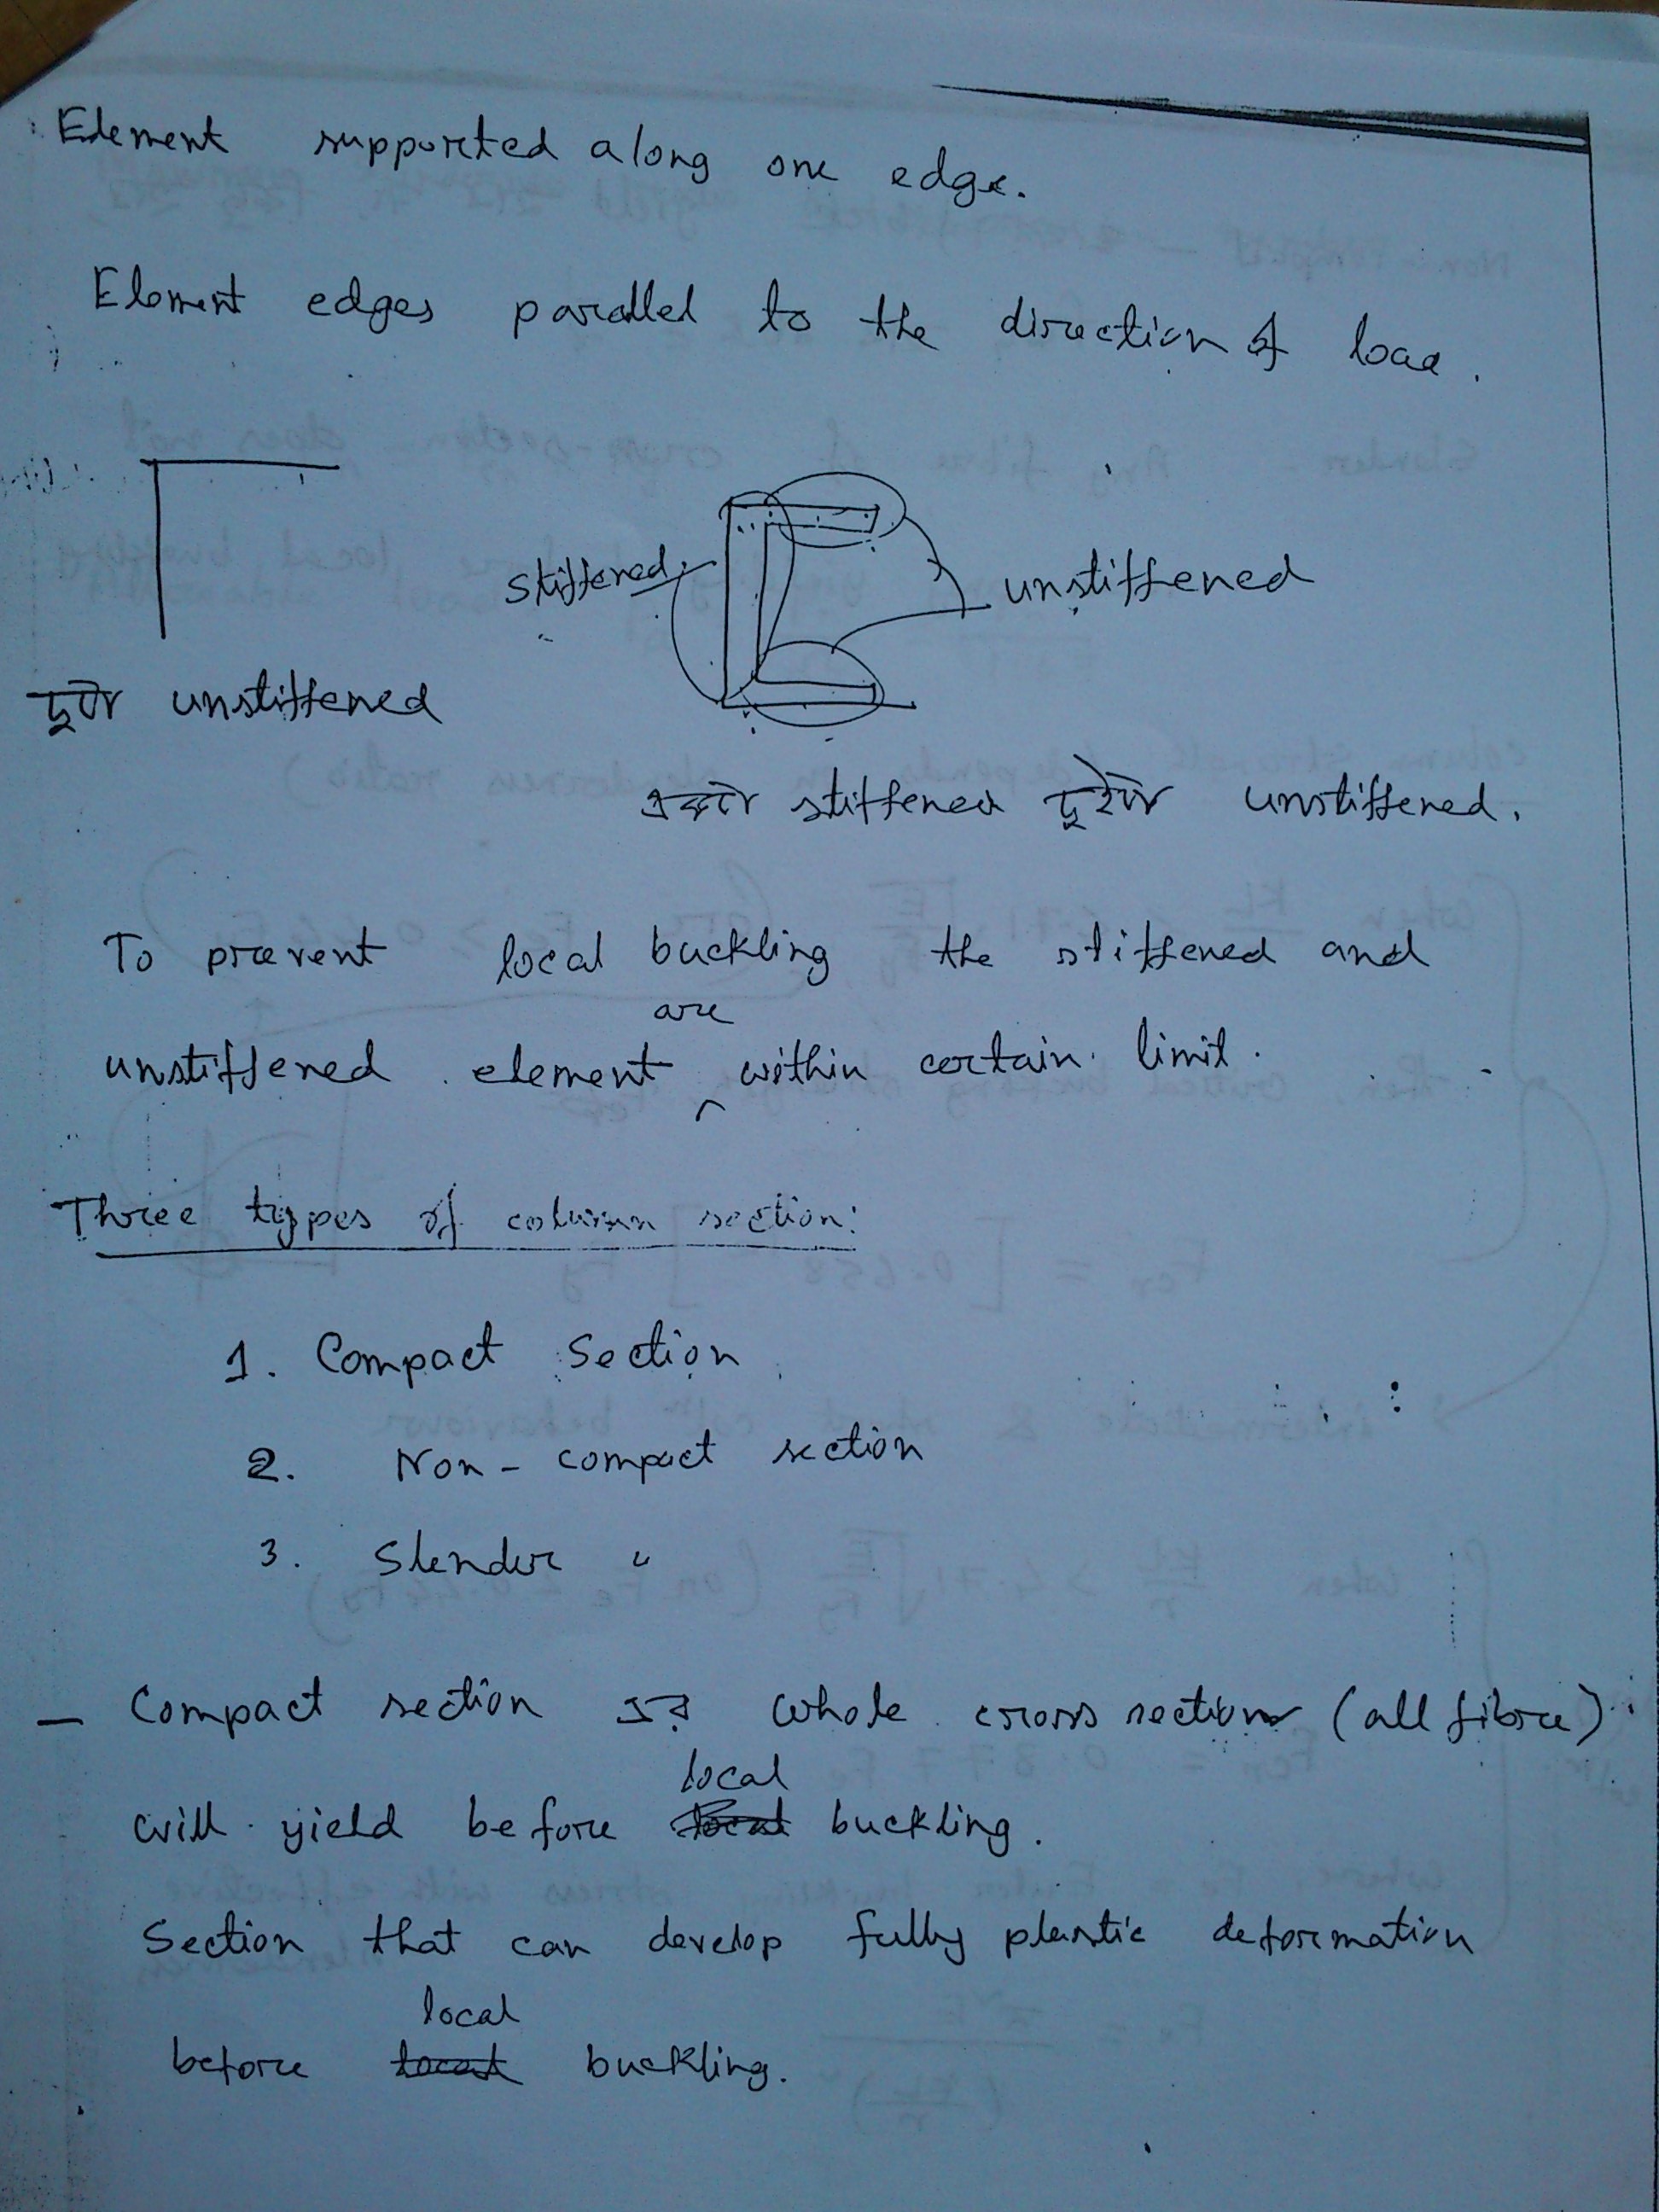 Element supported along one edge.
Element edges parallel to the direction of load.
stiffened
unstiffened
দুটোই unstiffened
একটা stiffened দুইটা unstiffened.
To prevent local buckling the stiffened and
are
unstiffened element within certain limit.
Three types of column section:
1. Compact Section
2. Non-compact section
3. Slender "
— Compact section এর whole cross section (all fibre)
will yield before local buckling.
Section that can develop fully plastic deformation
before local buckling.